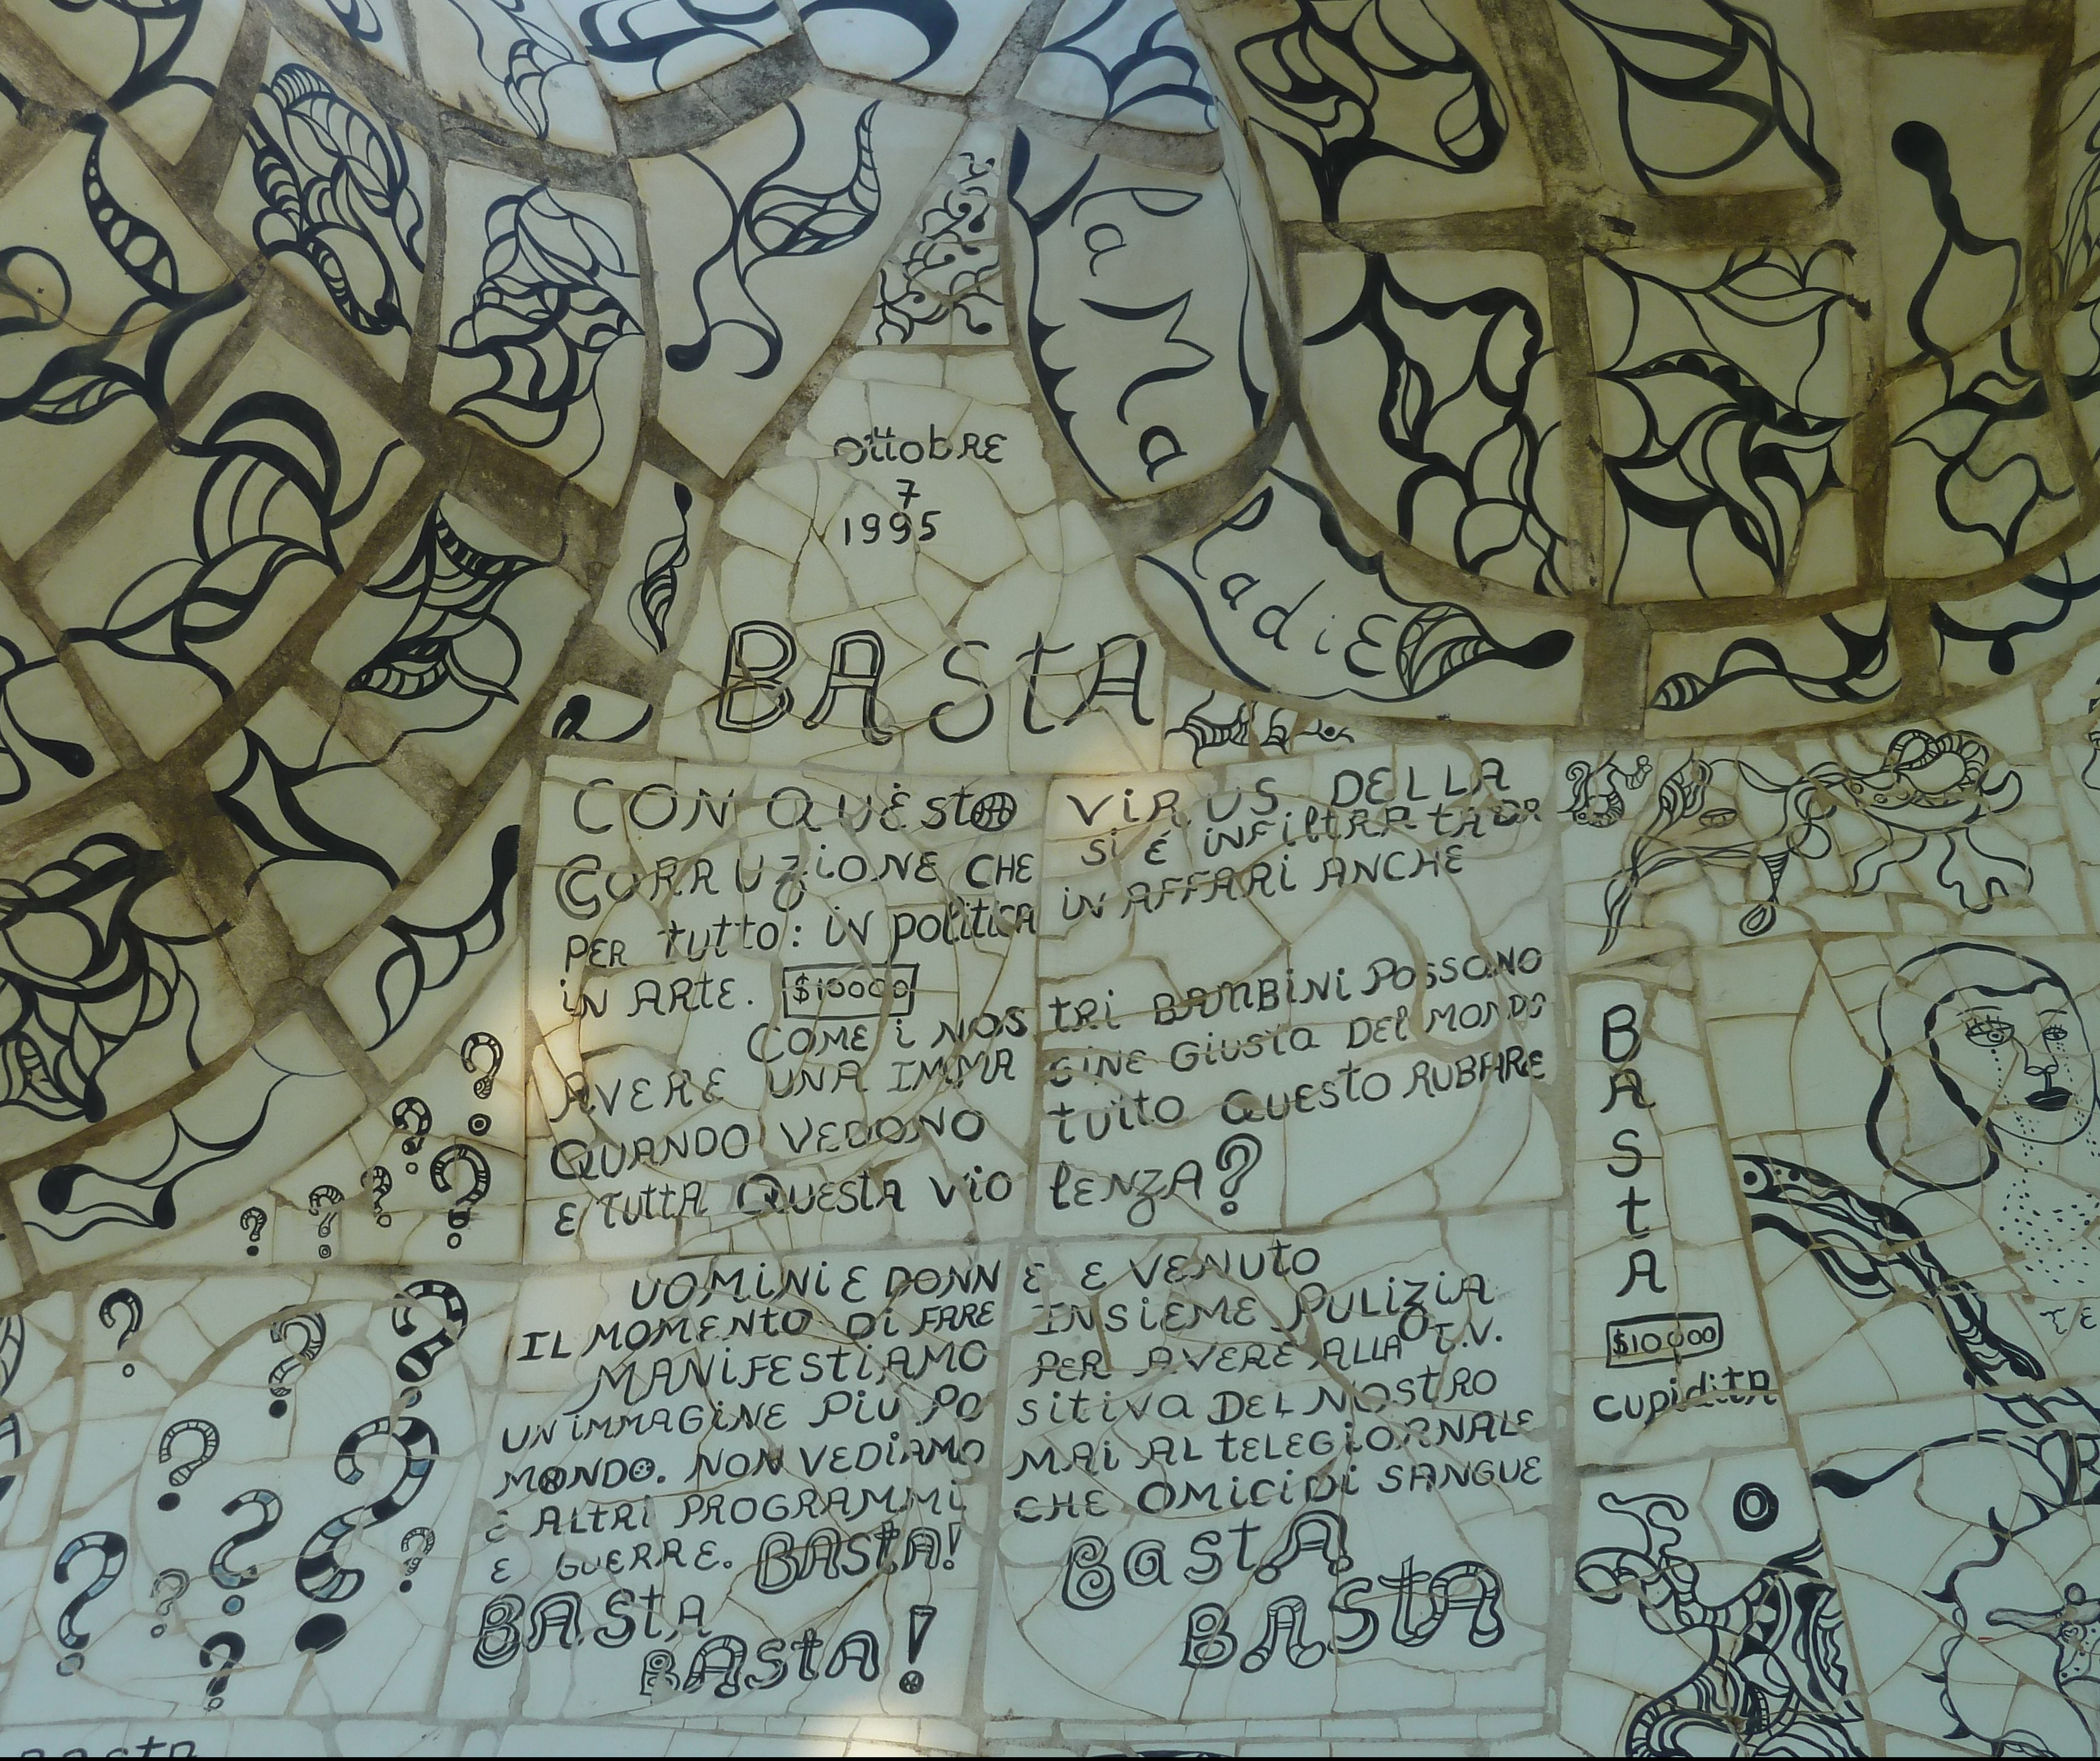 PaMa
Padie
OttobRE
7
1995
BAStA
CON QUESto VIRUS DELLA
CORRUZIONE CHE SI É INFILTRATA
PER tutto: IN politica IN AFFARI ANCHE
IN ARTE. $10000
COME I NOStRI BAMBINI POSSONO
AVERE UNA IMMAGINE GIUSTA DEL MONDO
QUANDO VEDONO tutto QUESTO RUBARE
E tuttA QUESTA VIOlENZA?
UOMINI E DONNE E VENUTO
IL MOMENTO DI FARE INSIEME PULIZIA
MANIFESTIAMO PER AVERE ALLA T.V.
UN IMMAGINE PIU POSITIVA DEL NOSTRO
MONDO. NON VEDIAMO MAI AL TELEGIORNALE
E ALTRI PROGRAMMI CHE OMICIDI SANGUE
E GUERRE. BAStA! BaStA
BAStA BAStA! BAStA
BAStA
$10000
CUPIDITA
TE
BAStA